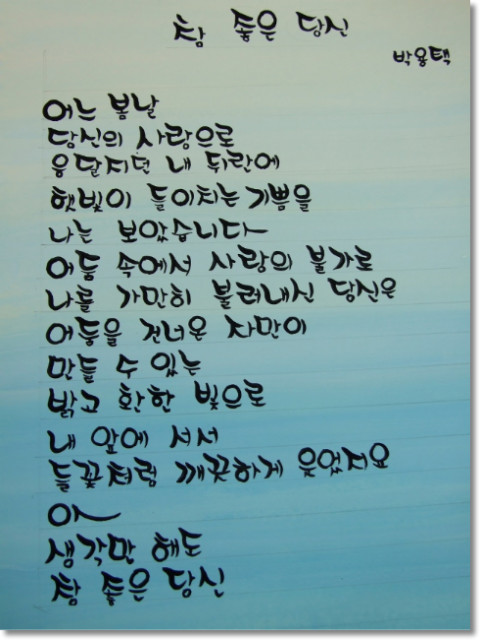 참 좋은 당신
박용택
어느 봄날
당신의 사랑으로
응달지던 내 뒤란에
햇빛이 들이치는 기쁨을
나는 보았습니다
어둠 속에서 사랑의 불가로
나를 가만히 불러내신 당신은
어둠을 건너온 자만이
만들 수 있는
밝고 환한 빛으로
내 앞에 서서
들꽃처럼 깨끗하게 웃었지요
아
생각만 해도
참 좋은 당신